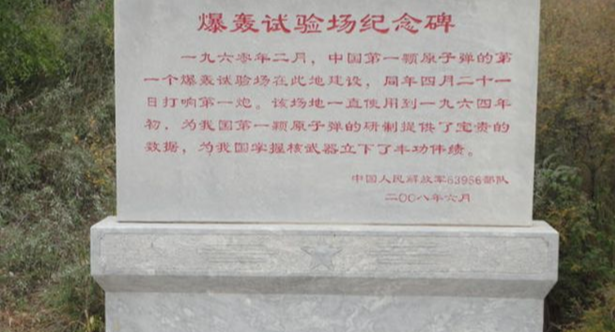 爆轰试验场纪念碑
一九六零年二月，中国第一颗原子弹的第
一个爆轰试验场在此地建设，同年四月二十一
日打响第一炮。该场地一直使用到一九六四年
初，为我国第一颗原子弹的研制提供了宝贵的
数据，为我国掌握核武器立下了丰功伟绩。
中国人民解放军63956部队
二〇〇八年六月